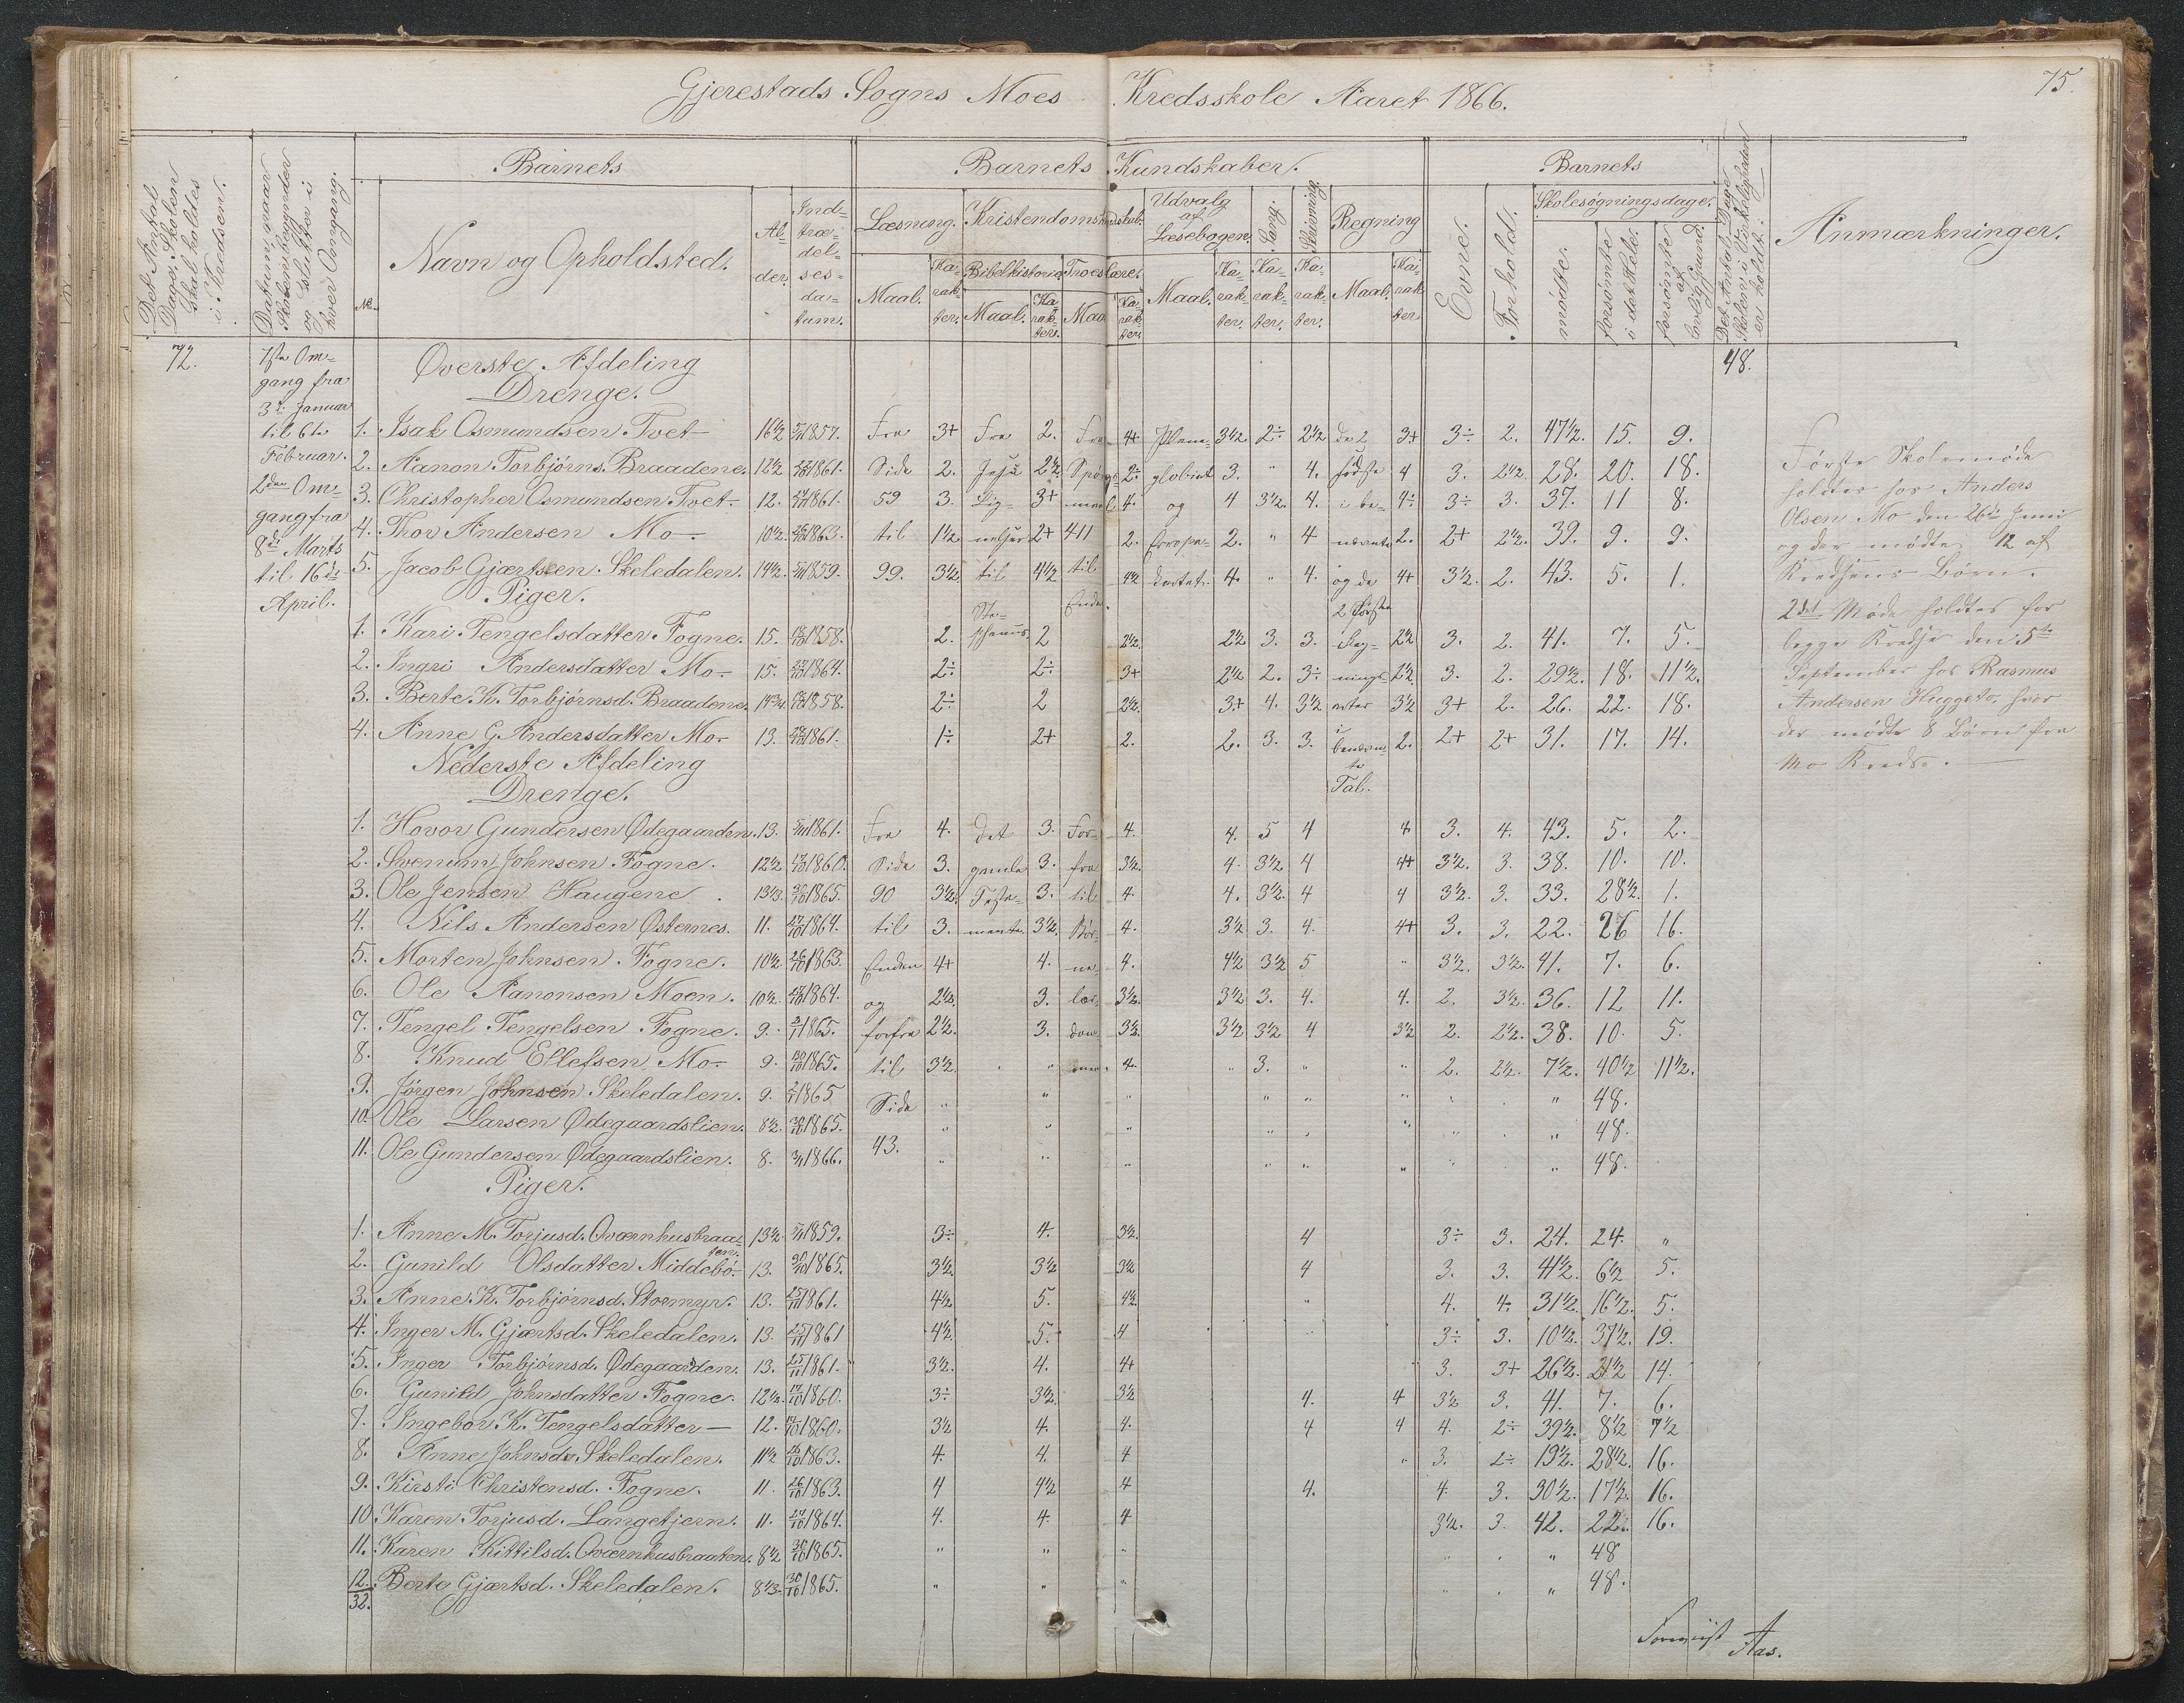 75.
Gjerestads Sogns Moes Kredsskole Aaret 1866.
Det Antal Dage, Skolen skal holdes i Kredsen.
Datum, naar Skolen begynder og slutter i hver Omgang.
Barnets
No.
Navn og Opholdsted.
Alder.
Indtrædelsesdatum.
Barnets Kundskaber.
Læsning. Kristendomskundskab.
Maal. Karakter.
Bibelhistorie. Troeslære.
Maal. Karakter. Maal. Karakter.
Udvalg af Læsebogen.
Maal. Karakter.
Sang. Karakter.
Skrivning. Karakter.
Regning
Maal. Karakter.
Barnets
Evne. Forhold.
Skolesøgningsdage.
mødte. forsømte i det Hele. forsømte af lovlig Grund.
Det Antal Dage Skolen i Virkeligheden er holdt.
Anmærkninger.
72.
1ste Omgang fra 3die Januar til 6te Februar.
2den Omgang fra 8de Marts til 16de April.
48.
Øverste Afdeling
Drenge.
1. Isak Osmundsen Tvet 16½ 1857. Fra 3+ Fra 2. Fra 4+ 3½ 2÷ 2½ de 2 3+ 3÷ 2. 47½. 15. 9.
2. Aanon Torbjørns. Braadene. 12½ 1861. Side 2. Jesu 2½ 2÷ globiet 3. " 4. 4 3. 2½ 28. 20. 18.
3. Christopher Osmundsen Tvet 12. 1861. 59 3. Lig- 3+ 4. og 4 3½. 4. i be- 4÷ 3÷ 3. 37. 11 8.
4. Thor Andersen Mo 10½. 1863. til 1½ nelser 2+ 411 2. Europa- 2. " 4 nævnte 2. 2+ 2½. 39. 9. 9.
5. Jacob Gjærtsen Skeledalen. 14½. 1859. 99. 3½ til 4½ til 4½ kartet. 4. " 4. og de 4+ 3½. 2. 43. 5. 1.
Piger.
Ste- Enden. 2 første
1. Kari Tengelsdatter Fogne. 15. 1858. 2. phanus 2 2½ 2½ 3. 3. 2½ 3. 2. 41. 7. 5.
2. Ingri Andersdatter Mo 15. 1864. 2÷ 2÷ 3+ 2½ 2. 3÷ nings- 2½ 3. 2. 29½. 18. 11½.
3. Berte K. Torbjørnsd. Braadene. 14¾ 1858. 2÷ 2 2½. 3+ 4. 3½ arter 3½ 3+ 2. 26. 22. 18.
4. Anne G. Andersdatter Mo 13. 1861. 1÷ 2+ 2. 2. 3. 3. i benævnte Tal. 2. 2+ 2+ 31. 17. 14.
Nederste Afdeling
Drenge.
1. Hovor Gundersen Ødegaarden. 13. 1861. Fra 4. det 3. For- 4. 4. 5 4 4 3. 4. 43. 5. 2.
2. Svenum Johnsen Fogne. 12½ 1860. Side 3. gamle 3. fra 3½. 4. 3½ 4 4+ 3½. 3. 38. 10. 10.
3. Ole Jensen Haugene. 13⅓. 1865. 90 3½. Testa- 3. til 4. 4. 3½. 4 4 3½. 3. 33. 28½. 1.
4. Nils Andersen Østernes. 11. 1864. til 3. mente. 3½. Bør- 4. 3½ 3. 4. 4+ 3. 3. 22. 26 16.
5. Morten Johnsen Fogne. 10½ 1863. Enden 4+ 4. ne- 4. 4½ 3½ 5 " 3½. 3½. 41. 7. 6.
6. Ole Aanonsen Moen. 10½. 1864. og 2½. 3. lær- 3½. 3½ 3. 4. 4. 2. 3½. 36. 12 11.
7. Tengel Tengelsen Fogne. 9. 1865. forfra 2½. 3. dom- 3½. 3½ 3½ 4 3½ 2. 2½. 38. 10. 5.
8. Knud Ellefsen Mo 9. 1865. til 3½. " " 4. " 3. " " 2. 2½. 7½. 40½ 11½.
9. Jørgen Johnsen Skeledalen. 9. 1865 Side " " " " " " " . " 48.
10. Ole Larsen Ødegaardslien. 8½. 1865. " " " " " " " . " 48.
11. Ole Gundersen Ødegaardslien. 8. 1866. 43. " " " " " " " . " 48.
Piger.
1. Anne M. Torjusd. Qværnhusbraaten. 13½. 1859. 3÷ 4. 3½. 4 3÷ 3. 24. 24. "
2. Gunild Olsdatter Middebø. 13. 1865. 3½. 3½ 3½ 4 3. 3. 41½. 6½ 5.
3. Anne K. Torbjørnsd. Stormyr. 13. 1861. 4½. 5. 4½. " 4. 4. 31½. 16½. 5.
4. Inger M. Gjærtsd. Skeledalen. 13. 1861 4½. 5. 4 " 3÷ 3. 10½. 37½. 19.
5. Inger Torbjørnsd. Ødegaarden. 13. 1861. 3½. 4. 4+ " 3. 3+ 26½. 21½ 14.
6. Gunild Johnsdatter Fogne. 12½. 1860. 3÷ 3½. 3½ 4. 4 3½ 3. 41. 7. 6.
7. Ingebor K. Tengelsdatter — 12. 1860. 3½ 4. 4. 4 4 4. 2÷ 39½. 8½ 7½
8. Anne Johnsd. Skeledalen. 11½ 1863. 4. 4. 4 " 3. 2÷ 19½. 28½. 16.
9. Kirsti Christensd. Fogne. 11. 1863. 4 4½ 4 4. 4. 3. 30½. 17½. 16.
10. Karen Torjusd. Langetjern. 11. 1864. 4. 4. 4 3½. 3. 42. 22. 16.
11. Karen Kittilsd. Qværnhusbraaten. 8½ 1865. " " " " . " 48
12. Berte Gjærtsd. Skeledalen. 8⅓. 1865. " " " " . " 48.
32.
Første Skolemøde
holdtes hos Anders
Olsen Mo den 26de Juni
og der mødte 12 af
Kredsens Børn.
2det Møde holdtes for
begge Kredse den 5te
September hos Rasmus
Andersen Huggeto, hvor
der mødte 8 Børn fra
Mo Kreds. —
Aas.